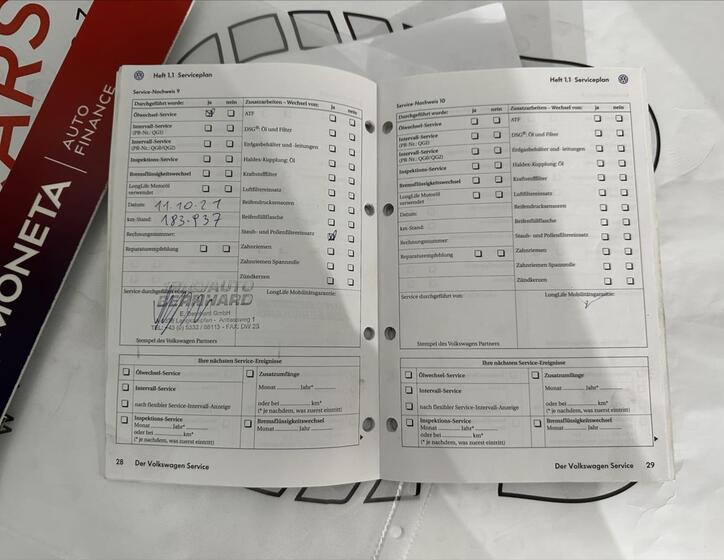 ARS
MONETA
AUTO
FINANCE
Heft 1.1 Serviceplan
Service-Nachweis 9
Durchgeführt wurde: ja nein Zusatzarbeiten – Wechsel von: ja nein
Ölwechsel-Service ATF
Intervall-Service
(PR-Nr.: QG1) DSG®: Öl und Filter
Intervall-Service
(PR-Nr.: QG0/QG2) Erdgasbehälter und -leitungen
Inspektions-Service Haldex-Kupplung: Öl
Bremsflüssigkeitswechsel Kraftstofffilter
LongLife Motoröl
verwendet Luftfiltereinsatz
Datum: 11.10.21 Reifendrucksensoren
km-Stand: 183.937 Reifenfüllflasche
Rechnungsnummer: Staub- und Pollenfiltereinsatz
Reparaturempfehlung Zahnriemen
Zahnriemen Spannrolle
Zündkerzen
Service durchgeführt von:
LongLife Mobilitätsgarantie:
AUTO
BERNHARD
E. Bernhard GmbH
Stempel des Volkswagen Partners
Ihre nächsten Service-Ereignisse
Ölwechsel-Service Zusatzumfänge
Intervall-Service Monat Jahr*
nach flexibler Service-Intervall-Anzeige oder bei km*
(* je nachdem, was zuerst eintritt)
Inspektions-Service Bremsflüssigkeitswechsel
Monat Jahr* Monat Jahr
oder bei km*
(* je nachdem, was zuerst eintritt)
28 Der Volkswagen Service
Heft 1.1 Serviceplan
Service-Nachweis 10
Durchgeführt wurde: ja nein Zusatzarbeiten – Wechsel von: ja nein
Ölwechsel-Service ATF
Intervall-Service
(PR-Nr.: QG1) DSG®: Öl und Filter
Intervall-Service
(PR-Nr.: QG0/QG2) Erdgasbehälter und -leitungen
Inspektions-Service Haldex-Kupplung: Öl
Bremsflüssigkeitswechsel Kraftstofffilter
LongLife Motoröl
verwendet Luftfiltereinsatz
Datum: Reifendrucksensoren
km-Stand: Reifenfüllflasche
Rechnungsnummer: Staub- und Pollenfiltereinsatz
Reparaturempfehlung Zahnriemen
Zahnriemen Spannrolle
Zündkerzen
Service durchgeführt von: LongLife Mobilitätsgarantie:
Stempel des Volkswagen Partners
Ihre nächsten Service-Ereignisse
Ölwechsel-Service Zusatzumfänge
Intervall-Service Monat Jahr*
nach flexibler Service-Intervall-Anzeige oder bei km*
(* je nachdem, was zuerst eintritt)
Inspektions-Service Bremsflüssigkeitswechsel
Monat Jahr* Monat Jahr
oder bei km*
(* je nachdem, was zuerst eintritt)
Der Volkswagen Service 29